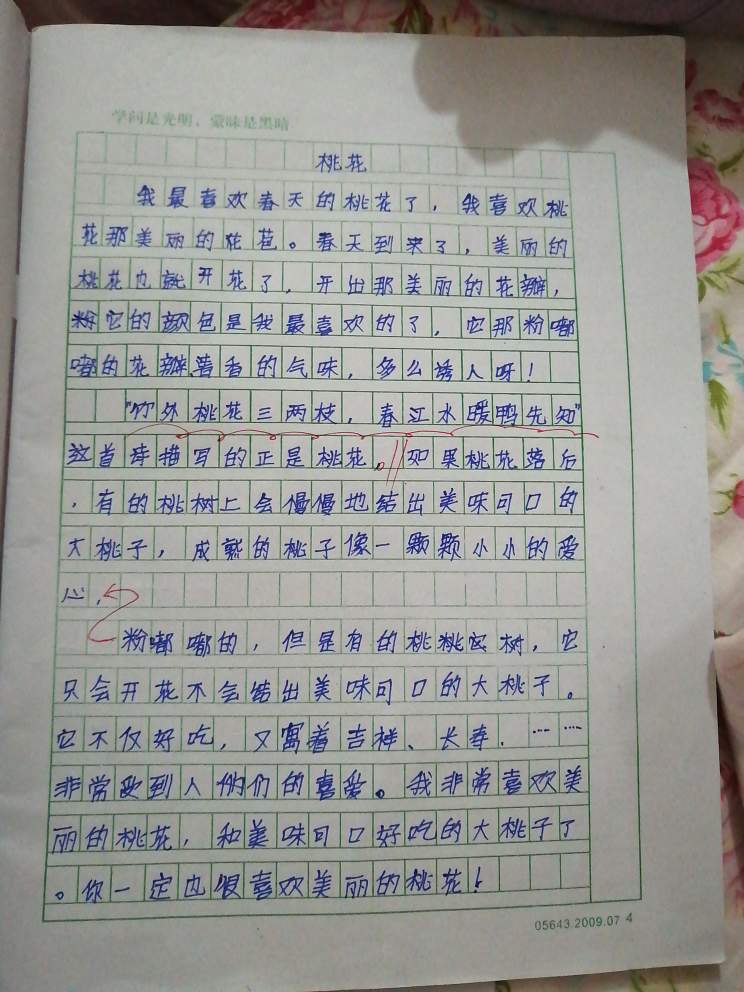 学问是光明，蒙昧是黑暗
桃花
我最喜欢春天的桃花了，我喜欢桃
花那美丽的花苞。春天到来了，美丽的
桃花也就开花了，开出那美丽的花瓣，
它的颜色是我最喜欢的了，它那粉嘟
嘟的花瓣清香的气味，多么诱人呀！
"竹外桃花三两枝，春江水暖鸭先知"
这首诗描写的正是桃花。如果桃花落后
，有的桃树上会慢慢地结出美味可口的
大桃子，成熟的桃子像一颗颗小小的爱
心，
粉嘟嘟的，但是有的桃树，它
只会开花不会结出美味可口的大桃子。
它不仅好吃，又寓着吉祥、长寿.……
非常受到人们的喜爱。我非常喜欢美
丽的桃花，和美味可口好吃的大桃子了
。你一定也很喜欢美丽的桃花！
05643.2009.07 4